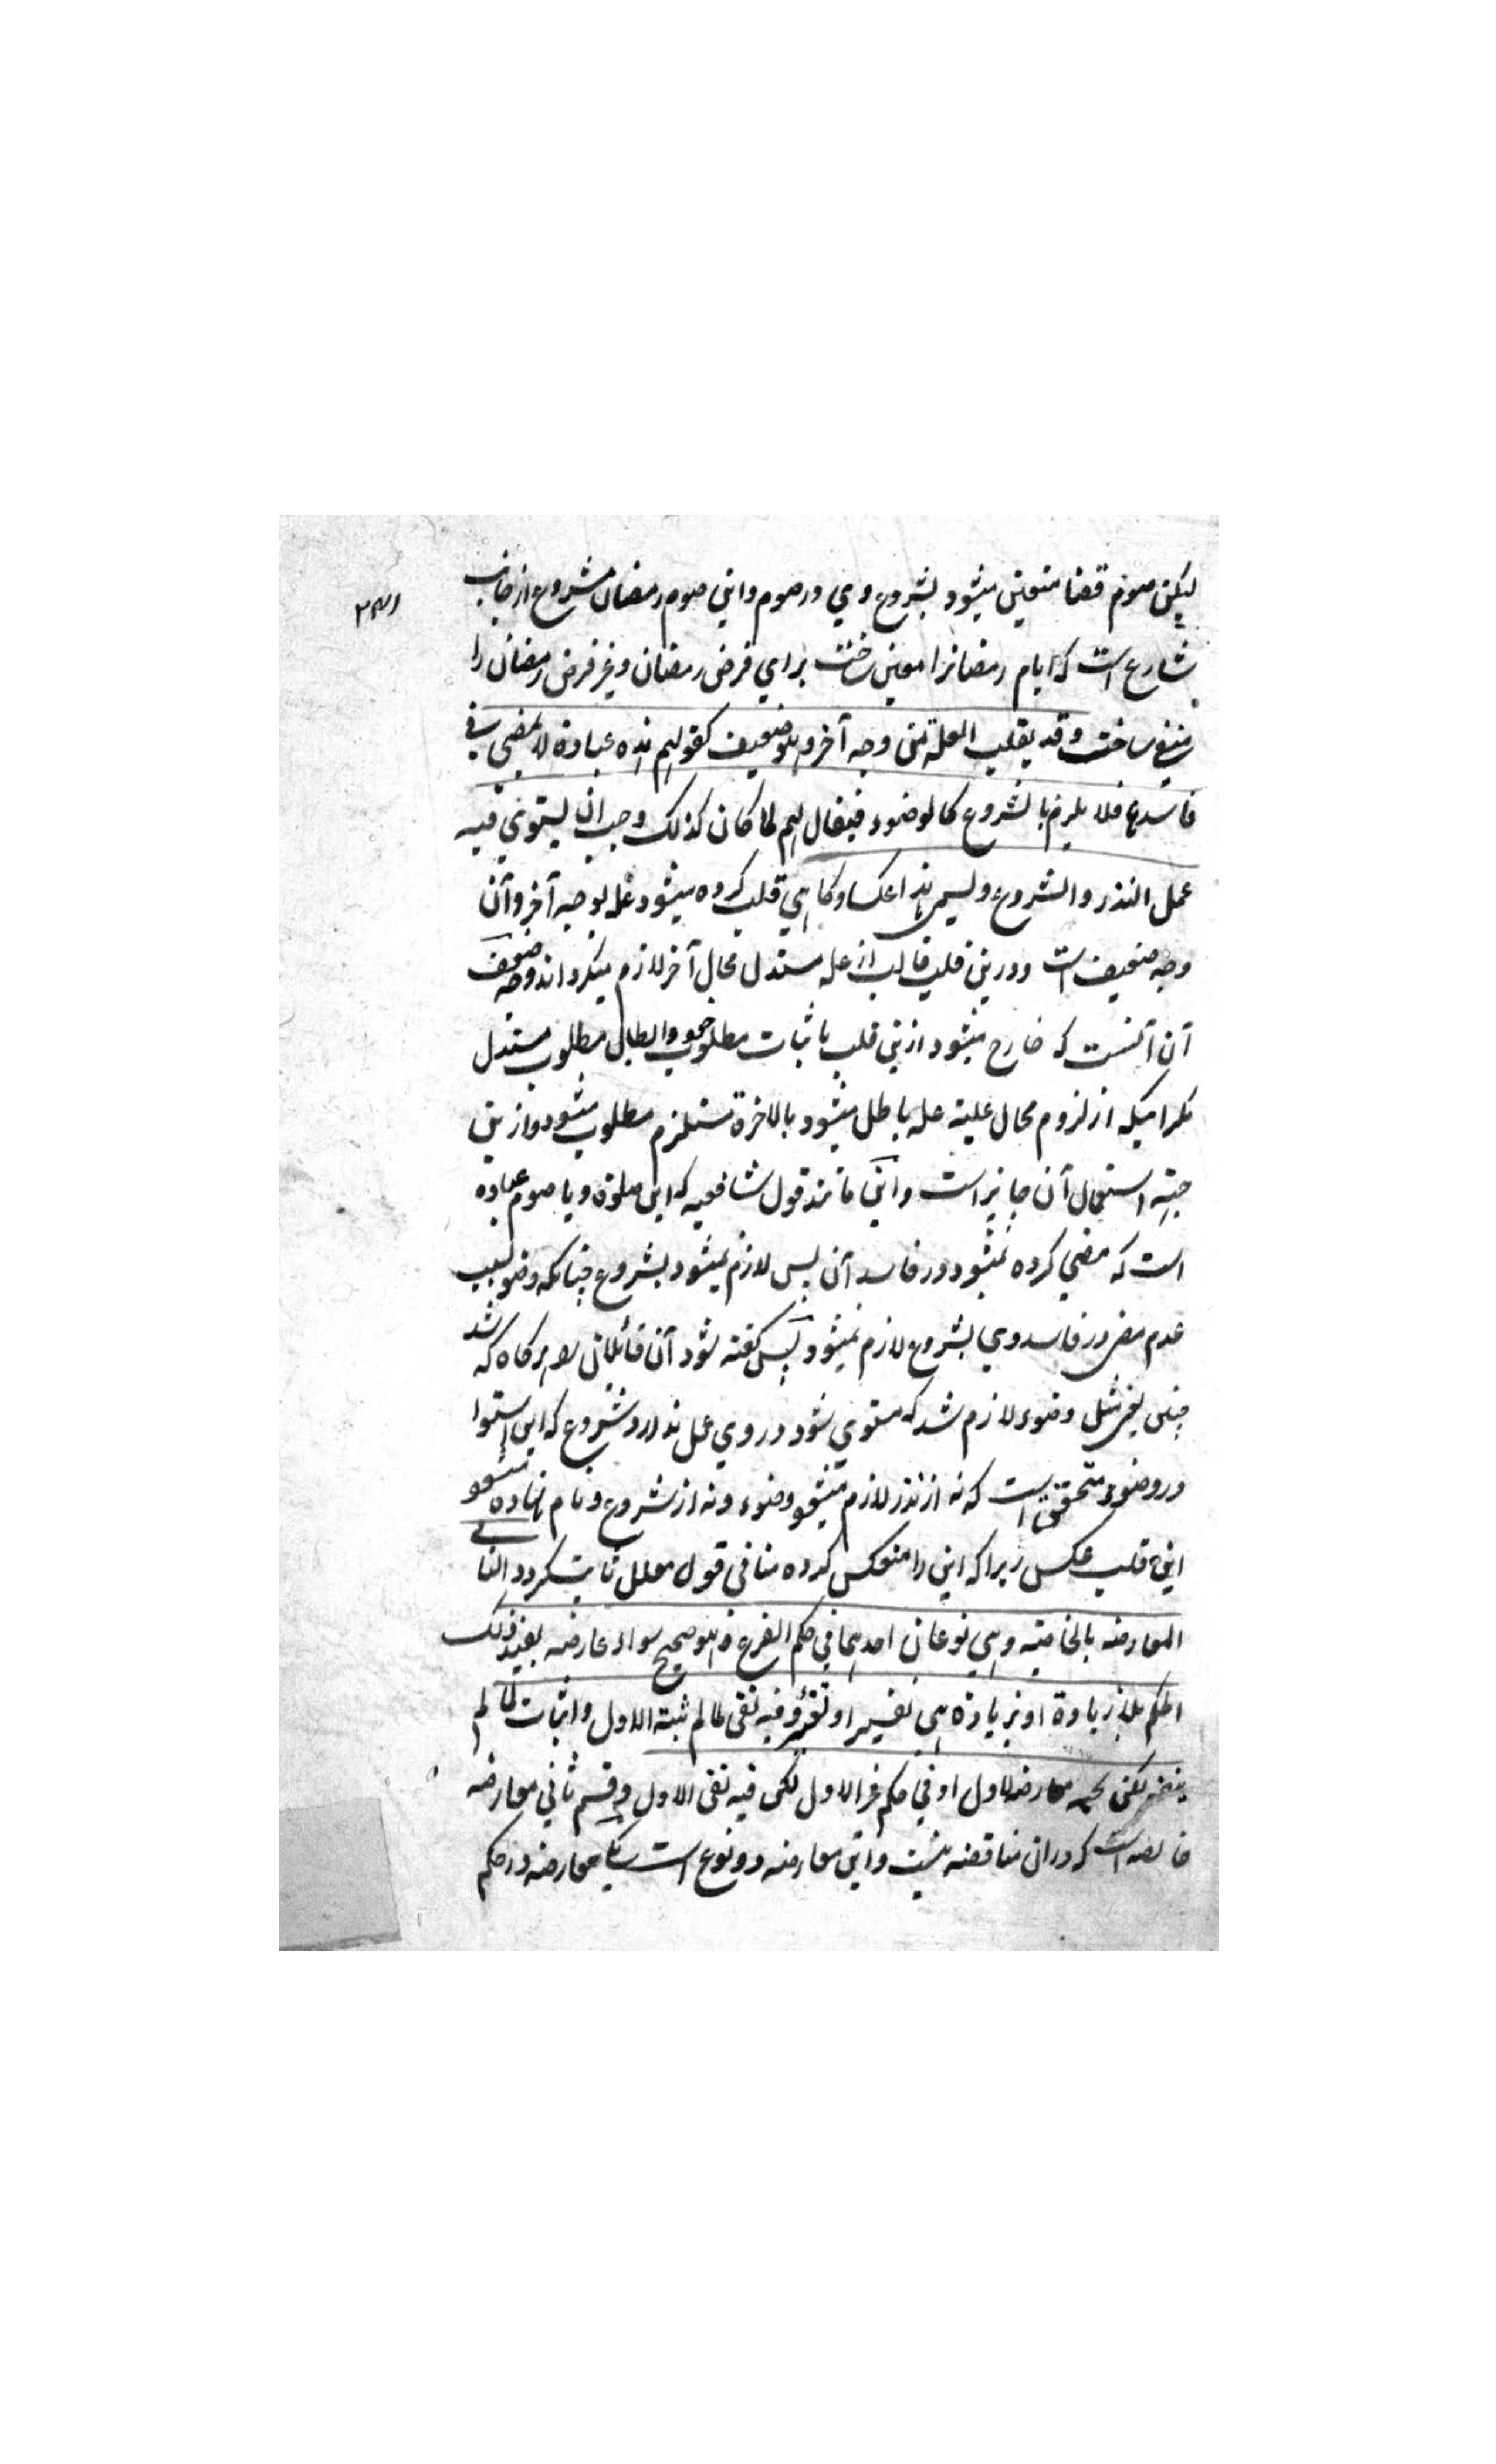 لیکن صوم قضا متعین میشود بشروع وي در صوم و این صوم رمضان مشروع از جانب
شارع است که ایام رمضانرا معین ساخت براي فرض رمضان و غیر فرض رمضان را
منفي ساخت وقد یقلب العلة من وجه آخر وهو ضعیف کقولهم هذه عبادة لا یمضي في
فاسدها فلا یلزم بالشروع کالوضوء فیقال لهم لما کان کذلک وجب ان یستوي فیه
عمل النذر والشروع ویسمی هذا عکسا و کاهي قلب کرده میشود علة بوجه آخر و آن
وجه ضعیف است و درین قلب قالب از عله مستدل محال آخر لازم میکرداند و وجه ضعف
آن آنست که خارج میشود ازین قلب باثبات مطلوب و ابطال مطلوب مستدل
مکر اینکه از لزوم محال علیة عله باطل میشود بالاخرة مستلزم مطلوب میشود و ازین
جهته استعمال آن جایز است و این مانند قول شافعیه که این صلوة و یا صوم عباده
است که مضي کرده نمیشود در فاسد آن پس لازم نمیشود بشروع چنانکه وضو بسبب
عدم مضی در فاسد وي بشروع لازم نمیشود پس کفته شود آن قائلان را هرکاه که شد
چنین یعنی مثل وضوء لازم شد که مستوي شود در وي عمل نذر و شروع که این استوا
در وضوء متحقق است که نه از نذر لازم میشود وضوء و نه از شروع و نام نهاده میشود
این قلب عکس زیرا که این را منعکس کرده منافی قول معلل ثابت کرد والثاني
المعارضه بالخالصة وهي نوعان احدهما في حکم الفرع وهو صحیح سواء عارضه بضد ذلک
الحکم بلا زیادة او بزیادة هي تفسیر او تغییر وفیه نفی لما لم یثبته الاول واثبات لما لم
ینفه لکن تحته معارضة للاول او في حکم غیر الاول لکن فیه نفی الاول و قسم ثاني معارضه
خالصه است که دران مناقضه نیست و این معارضه دو نوع است یکي معارضه در حکم